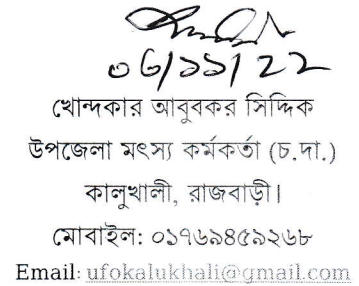 ০৬/১১/২২
খোন্দকার আবুবকর সিদ্দিক
উপজেলা মৎস্য কর্মকর্তা (চ.দা.)
কালুখালী, রাজবাড়ী।
মোবাইল: ০১৭৬৯৪৫৯২৬৮
Email: ufokalukhali@gmail.com